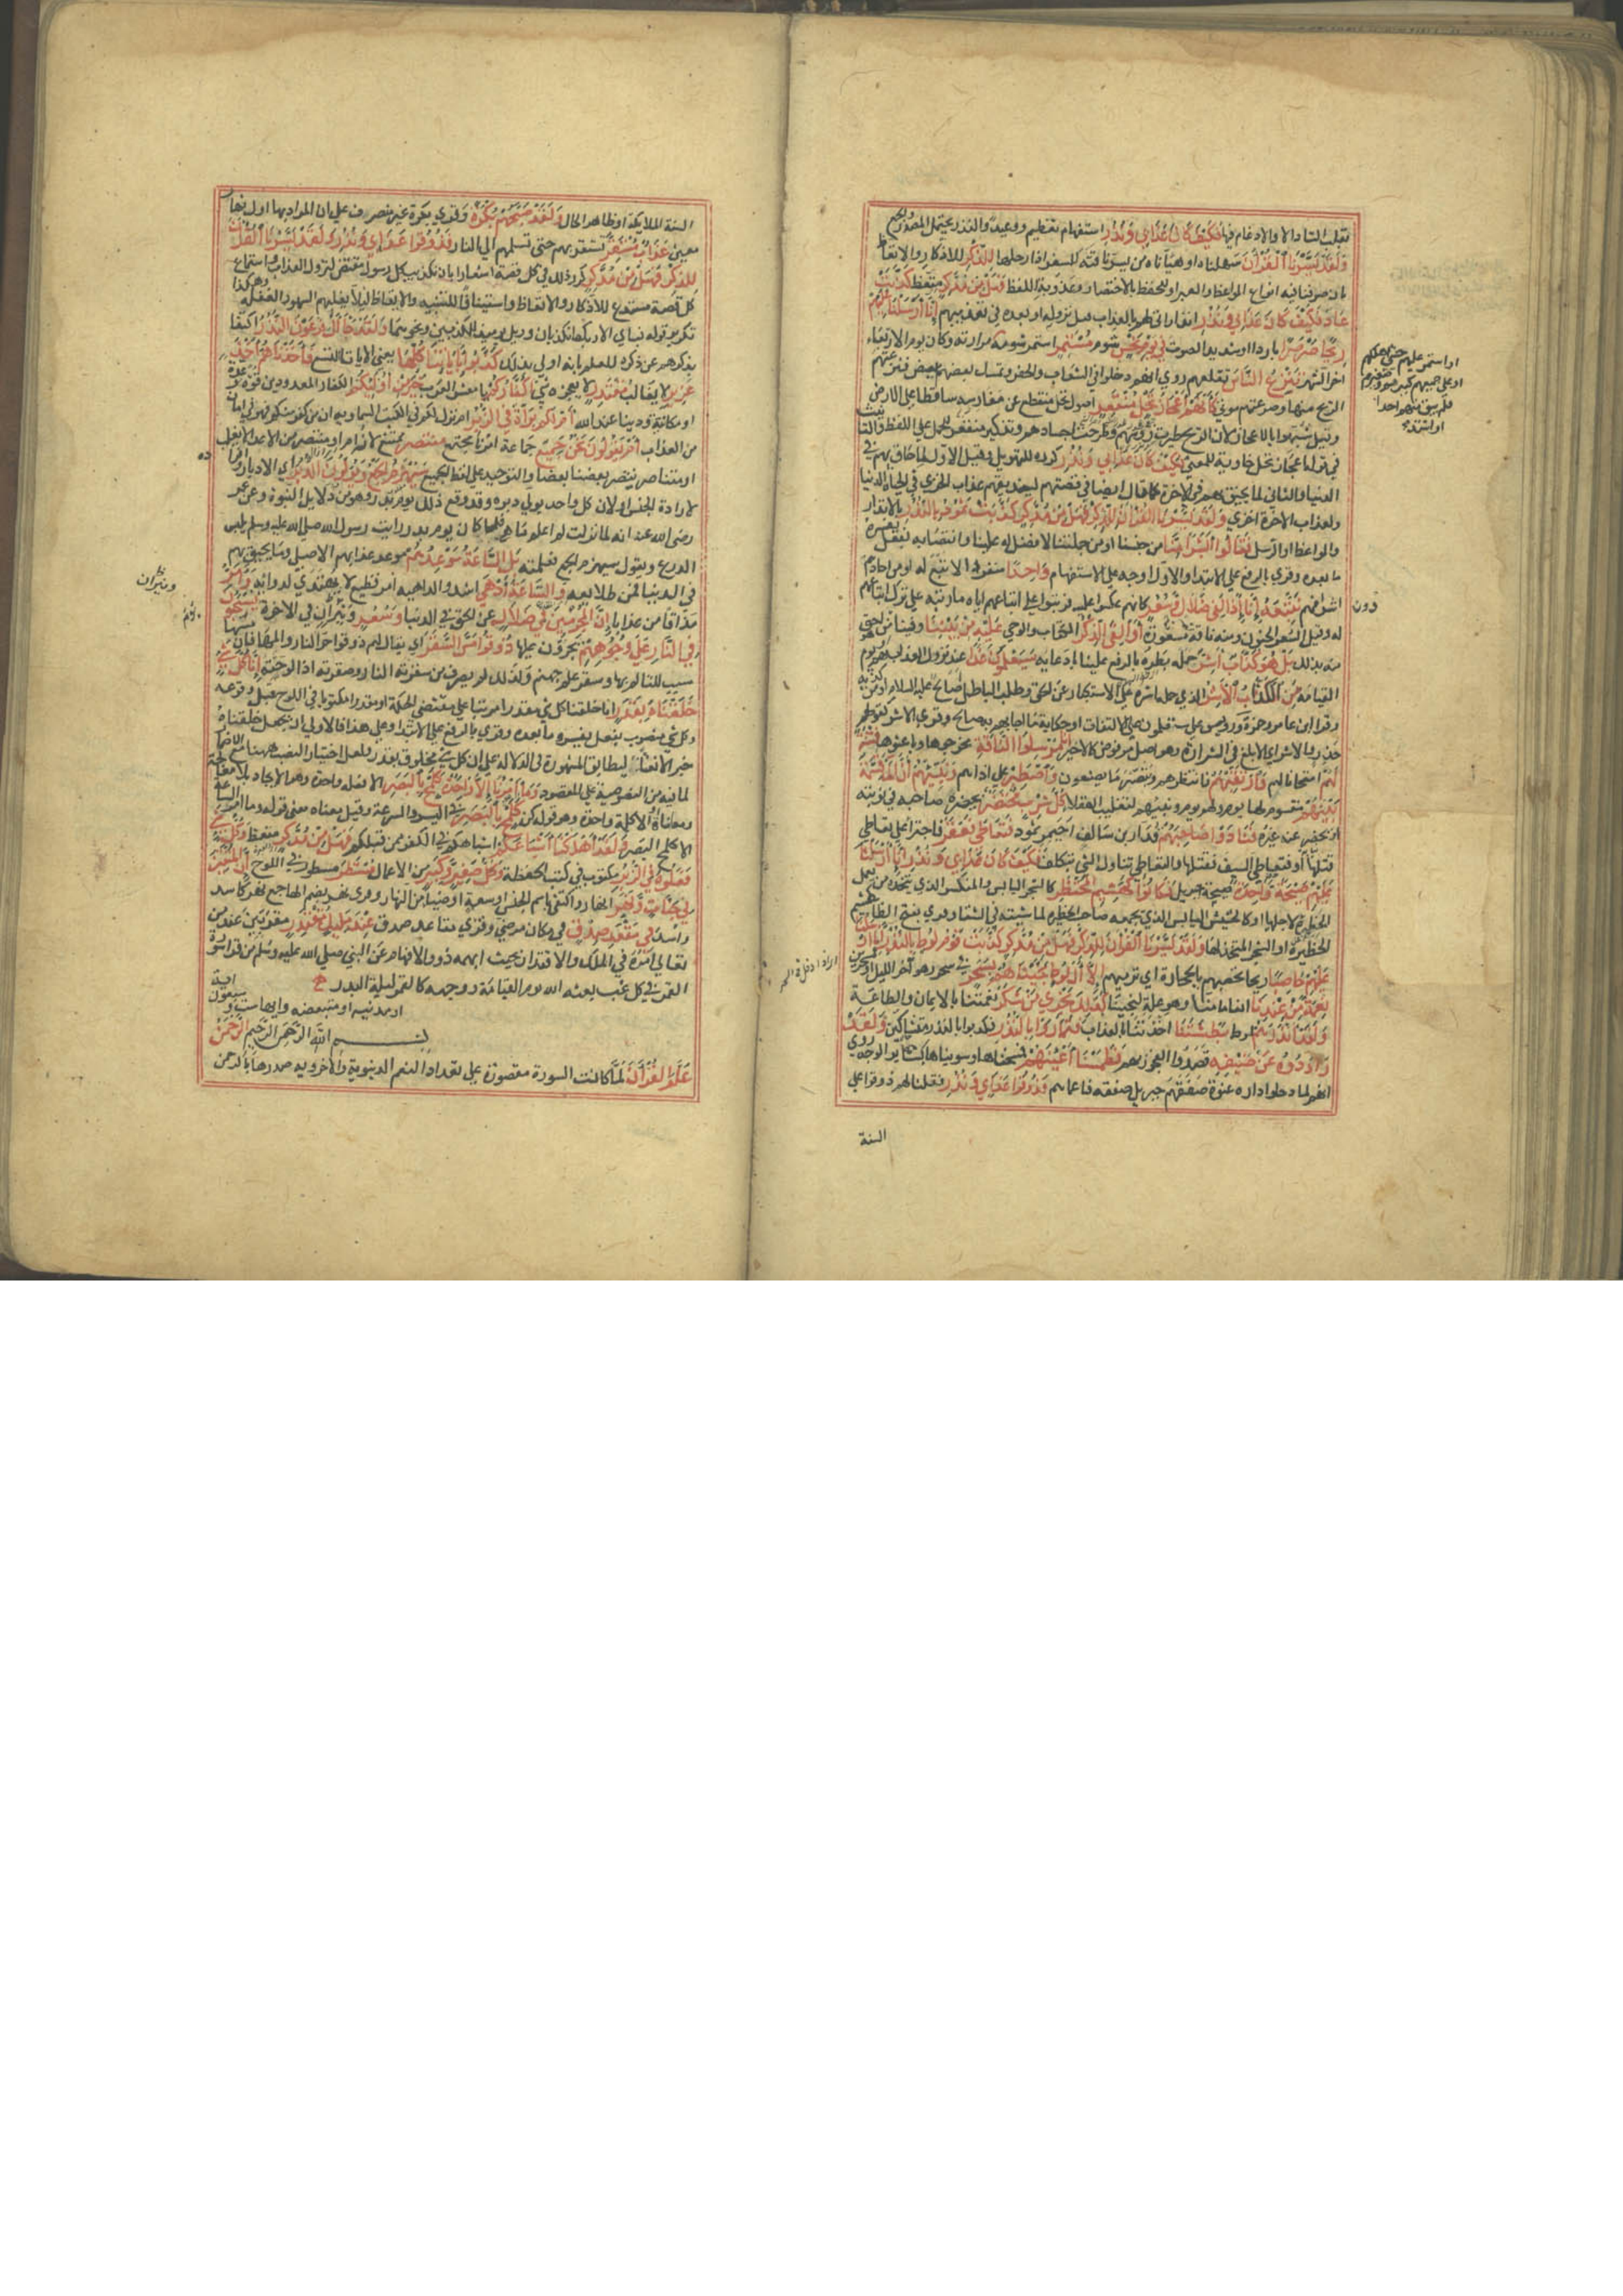 بقلب التاء دالا والادغام فيها فكيف كان عذابي ونذر استفهام تعظيم ووعيد والنذر يحتمل المصدر والجمع
ولقد يسرنا القرآن سهلناه او هيأناه من يسر ناقته للسفر اذا رحلها للذكر للاذكار والاتعاظ
بان صرفنا فيه انواع المواعظ والعبر او للحفظ بالاختصار وعذوبة اللفظ فهل من مدكر متعظ كذبت
عاد فكيف كان عذابي ونذر انذاراتي لهم بالعذاب قبل نزوله او لمن بعده في تعذيبهم انا ارسلنا عليهم
ريحا صرصرا باردا او شديد الصوت في يوم نحس شوم مستمر استمر شومه مرارته وكان يوم الاربعاء
اخر الشهر تنزع الناس تقلعهم روي انهم دخلوا في الشعاب والحفر وتمسك بعضهم ببعض فنزعتهم
الريح منها وصرعتهم موتى كأنهم اعجاز نخل منقعر اصول نخل منقطع عن مغارسه ساقطا على الارض
وقيل شبهوا بالاعجاز لان الريح طيرت رؤسهم وطرحت اجسادهم وتذكير منقعر للحمل على اللفظ والتأنيث
في قوله اعجاز نخل خاوية للمعنى فكيف كان عذابي ونذر كرره للتهويل وقيل الاول لما حاق بهم في
الدنيا والثاني لما يحيق بهم في الاخرة كما قال ايضا في قصتهم لنذيقهم عذاب الخزي في الحياة الدنيا
ولعذاب الاخرة اخزى ولقد يسرنا القرآن للذكر فهل من مدكر كذبت ثمود بالنذر بالانذار
والمواعظ او الرسل فقالوا ابشرا منا من جنسنا او من جملتنا لا فضل له علينا وانتصابه بفعل يفسره
ما بعده وقرئ بالرفع على الابتداء والاول اوجه على الاستفهام واحدا منفردا لا تبع له او من احادهم
دون
اشرافهم نتبعه انا اذا لفي ضلال وسعر كانهم عكسوا عليه فرتبوا على اتباعهم اياه ما رتبه على ترك اتباعهم
له وقيل السعر الجنون ومنه ناقة مسعورة أألقي الذكر الكتاب والوحي عليه من بيننا وفينا من احق
منه بذلك بل هو كذاب اشر حمله بطره على الترفع علينا بادعائه سيعلمون غدا عند نزول العذاب بهم او يوم
القيامة من الكذاب الاشر الذي حمله اشره على الاستكبار عن الحق وطلب الباطل اصالح عليه السلام او من كذبه
وقرأ ابن عامر وحمزة ورويس ستعلمون على الالتفات او حكاية ما اجابهم به صالح وقرئ الاشر كقولهم
حذر والاشر اي الابلغ في الشرارة وهو اصل مرفوض كالاخير انا مرسلوا الناقة مخرجوها وباعثوها فتنة
لهم امتحانا لهم فارتقبهم فانتظرهم وتبصر ما يصنعون واصطبر على اذاهم ونبئهم ان الماء قسمة
بينهم مقسوم لها يوم ولهم يوم وبينهم لتغليب العقلاء كل شرب محتضر يحضره صاحبه في نوبته
او يحضر عنه غيره فنادوا صاحبهم قدار بن سالف احيمر ثمود فتعاطى فعقر فاجترأ على تعاطي
قتلها او فتعاطى السيف فقتلها والتعاطي تناول الشيء بتكلف فكيف كان عذابي ونذر انا ارسلنا
عليهم صيحة واحدة صيحة جبريل فكانوا كهشيم المحتظر كالشجر اليابس والمنكسر الذي يتخذه من يعمل
الحظيرة لاجلها او كالحشيش اليابس الذي يجمعه صاحب الحظيرة لماشيته في الشتاء وقرئ بفتح الظاء
الحظيرة او الشجر المتخذ لها ولقد يسرنا القرآن للذكر فهل من مدكر كذبت قوم لوط بالنذر انا ارسلنا
عليهم حاصبا ريحا تحصبهم بالحجارة اي ترميهم الا آل لوط نجيناهم بسحر في سحر وهو آخر الليل
نعمة من عندنا انعاما منا وهو علة لنجينا كذلك نجزي من شكر نعمتنا بالايمان والطاعة
ولقد انذرهم لوط بطشتنا اخذتنا بالعذاب فتماروا بالنذر فكذبوا بالنذر متشاكين ولقد
راودوه عن ضيفه قصدوا الفجور بهم فطمسنا اعينهم فمسخناها وسويناها كسائر الوجه روي
انهم لما دخلوا داره عنوة صفقهم جبريل صفقة فاعماهم فذوقوا عذابي ونذر فقلنا لهم ذوقوا على
السنة
او استمر عليهم حتى اهلكهم
او على جميعهم كبيرهم وصغيرهم
فلم يبق منهم احدا
او اشتد
السنة الملايكة او ظاهر الحال ولقد صبحهم بكرة وقرئ بكرة غير مصروف على ان المراد بها اول نهار
معين عذاب مستقر يستقر بهم حتى تسلمهم الى النار فذوقوا عذابي ونذر ولقد يسرنا القرآن
للذكر فهل من مدكر كرر ذلك في كل قصة اشعارا بان تكذيب كل رسول مقتض لنزول العذاب واستماع
كل قصة مستدع للاذكار والاتعاظ واستينافا للتنبيه والايقاظ ليلا يغلبهم السهو والغفلة وهكذا
تكرير قوله فباي الاء ربكما تكذبان وويل يومئذ للمكذبين ونحوهما ولقد جاء آل فرعون النذر اكتفا
بذكرهم عن ذكره للعلم بانه اولى بذلك كذبوا بآياتنا كلها يعني الايات التسع فاخذناهم اخذ
عزيز لا يغالب مقتدر لا يعجزه شي اكفاركم يا معشر العرب خير من اولئكم الكفار المعدودين قوة وعدة
او مكانة ودينا عند الله ام لكم براءة في الزبر ام نزل لكم في الكتب السماوية ان من كفر منكم فهو في امان
من العذاب ام يقولون نحن جميع جماعة امرنا مجتمع منتصر ممتنع لا نرام او منتصر من الاعداء لا نغلب
او متناصر ينصر بعضنا بعضا والتوحيد على لفظ الجميع سيهزم الجمع ويولون الدبر اي الادبار وافراده
لارادة الجنس او لان كل واحد يولي دبره وقد وقع ذلك يوم بدر وهو من دلايل النبوة وعن عمر
رضي الله عنه انه لما نزلت لم اعلم ما هو فلما كان يوم بدر رايت رسول الله صلى الله عليه وسلم يلبس
الدرع ويقول سيهزم الجمع فعلمته بل الساعة موعدهم موعد عذابهم الاصلي وما يحيق بهم
في الدنيا فمن طلايعه والساعة ادهى اشد والداهية امر فظيع لا يهتدي لدوائه وامر
مذاقا من عذاب الدنيا ان المجرمين في ضلال عن الحق في الدنيا وسعر ونيران في الاخرة يوم يسحبون
في النار على وجوههم يجرون عليها ذوقوا مس سقر اي يقال لهم ذوقوا حر النار والمها فان مسها
سبب للتالم بها وسقر علم جهنم ولذلك لم يصرف من سقرته النار وصقرته اذا لوحته انا كل شيء
خلقناه بقدر انا خلقنا كل شي مقدرا مرتبا على مقتضى الحكمة او مقدرا مكتوبا في اللوح قبل وقوعه
وكل شي منصوب بفعل يفسره ما بعده وقرئ بالرفع على الابتداء وعلى هذا فالاولى ان يجعل خلقناه
خبرا لا نعتا ليطابق المشهورة في الدلالة على ان كل شي مخلوق بقدر ولعل اختيار النصب ههنا مع الاضمار
لما فيه من النصوصية على المقصود وما امرنا الا واحدة كلمح بالبصر الا فعلة واحدة وهو الايجاد بلا معالجة
ومعاناة او الا كلمة واحدة وهو قوله كن كلمح بالبصر في اليسر والسرعة وقيل معناه معنى قوله وما امر الساعة
الا كلمح البصر ولقد اهلكنا اشياعكم اشباهكم في الكفر ممن قبلكم فهل من مدكر متعظ وكل شيء
فعلوه في الزبر مكتوب في كتب الحفظة وكل صغير وكبير من الاعمال مستطر مسطور في اللوح ان المتقين
في جنات ونهر انهار واكتفى باسم الجنس او سعة او ضياء من النهار وقرئ نهر بضم الهاء جمع نهر كاسد
واسد في مقعد صدق في مكان مرضي وقرئ مقاعد صدق عند مليك مقتدر مقربين عند من
تعالى امره في الملك والاقتدار بحيث ابهمه ذوو الافهام عن النبي صلى الله عليه وسلم من قرا سورة
القمر في كل غب بعثه الله يوم القيامة ووجهه كالقمر ليلة البدر
او مدنية او متبعضة وايها ست وسبعون اية
بسم الله الرحمن الرحيم الرحمن
علم القرآن لما كانت السورة مقصورة على تعداد النعم الدنيوية والاخروية صدرها بالرحمن
ونيران